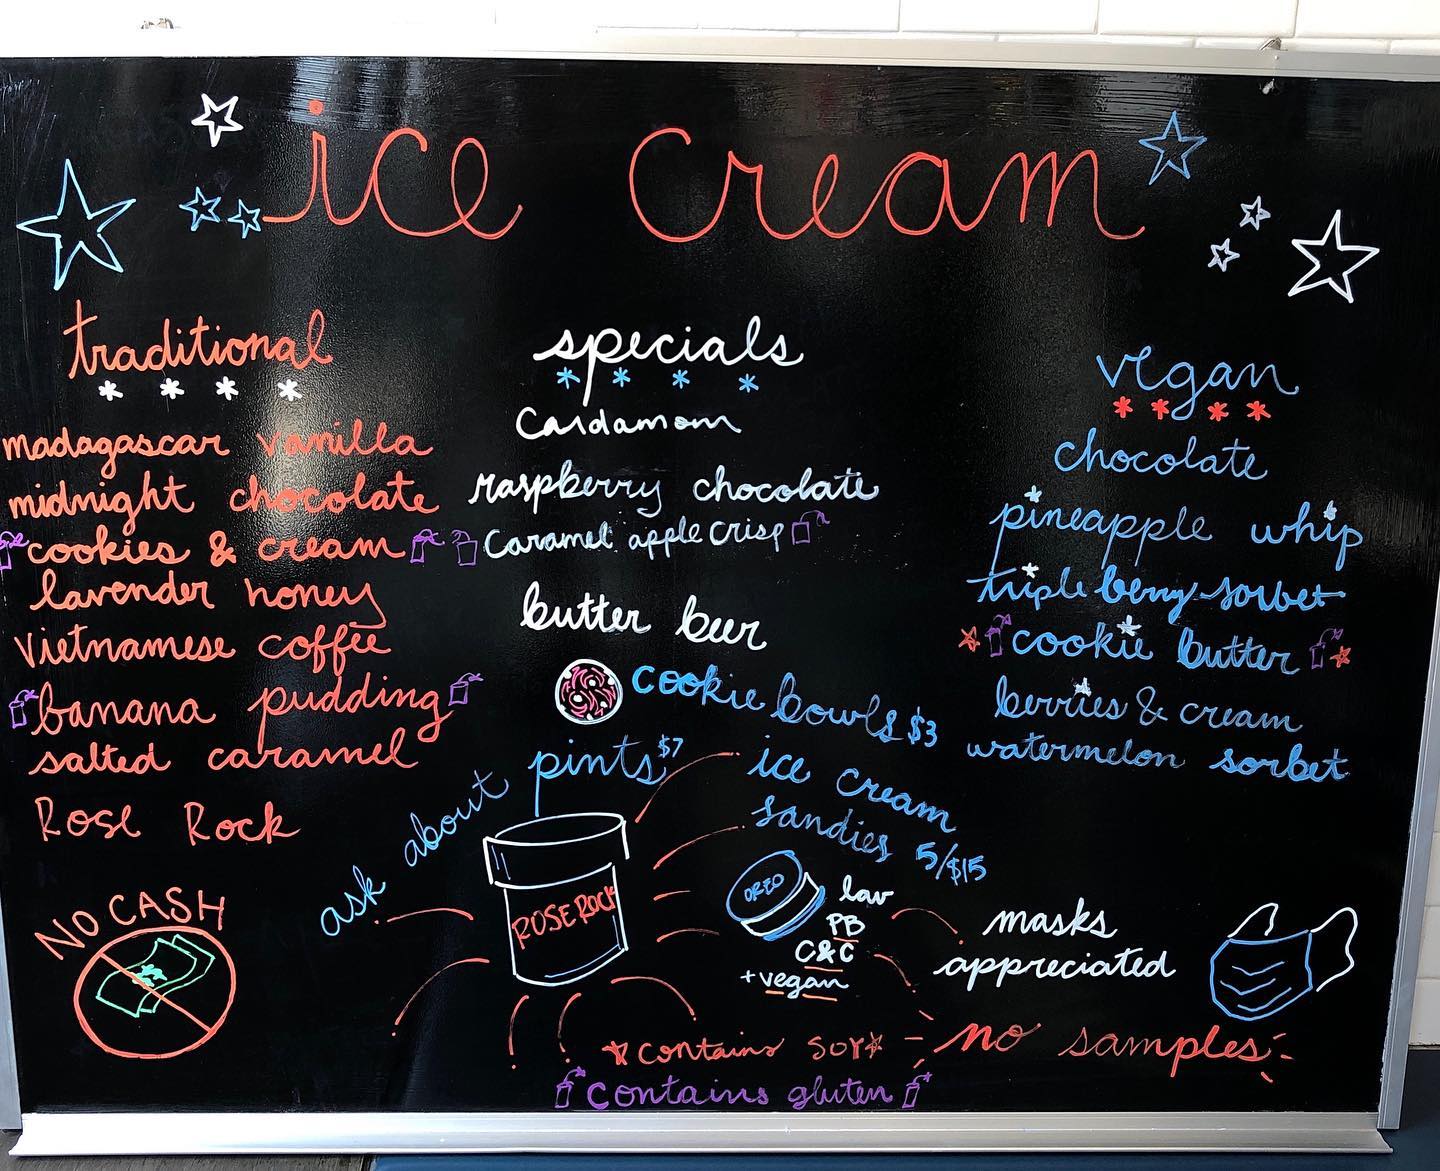 ice cream
traditional
* * * *
madagascar vanilla
midnight chocolate
cookies & cream
lavender honey
vietnamese coffee
banana pudding
salted caramel
Rose Rock
NO CASH
specials
* * * *
Cardamom
raspberry chocolate
Caramel apple crisp
butter beer
cookie bowls $3
ask about
pints $7
ROSE ROCK
ice cream
sandies 5/$15
OREO
lav
PB
C&C
+vegan
vegan
* * * *
chocolate
pineapple whip
triple berry sorbet
cookie butter
berries & cream
watermelon sorbet
masks
appreciated
no samples
contains soy
contains gluten